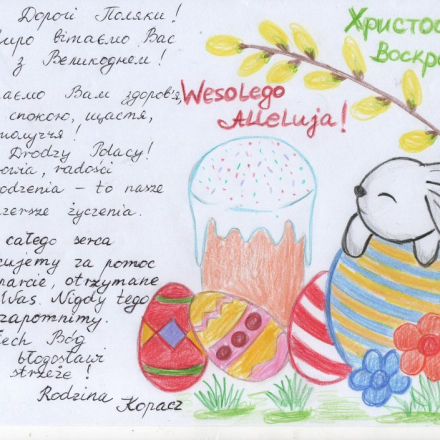 Дорогі Поляки!
вітаємо Вас
з Великоднем!
Вам здоров'я,
спокою, щастя,
Drodzy Polacy!
radości
to nasze
życzenia.
całego serca
za pomoc
otrzymane
Was. Nigdy tego
zapomnimy.
Bóg
błogosławi
strzeże!
Rodzina Kopacz
Христос
Wesołego
Alleluja!